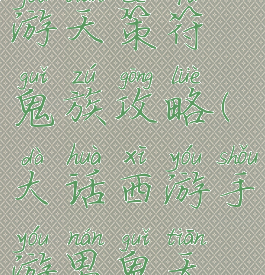 游天策符
guǐ zú gōng lüè
鬼族攻略(
dà huà xī yóu shǒu
大话西游手
yóu nán guǐ tiān
游男鬼天